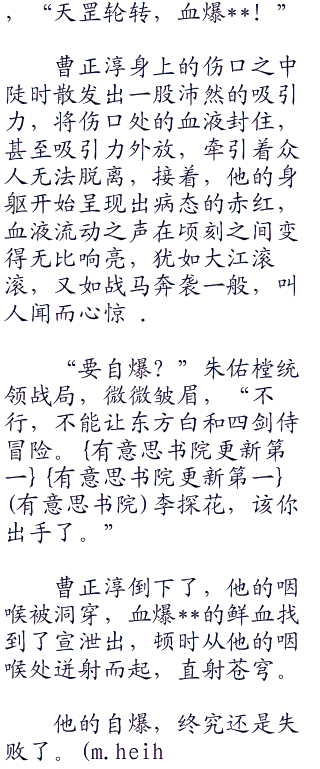 ，“天罡轮转，血爆**！”
曹正淳身上的伤口之中
陡时散发出一股沛然的吸引
力，将伤口处的血液封住，
甚至吸引力外放，牵引着众
人无法脱离，接着，他的身
躯开始呈现出病态的赤红，
血液流动之声在顷刻之间变
得无比响亮，犹如大江滚
滚，又如战马奔袭一般，叫
人闻而心惊 .
“要自爆？”朱佑樘统
领战局，微微皱眉，“不
行，不能让东方白和四剑侍
冒险。{有意思书院更新第
一}{有意思书院更新第一}
(有意思书院)李探花，该你
出手了。”
曹正淳倒下了，他的咽
喉被洞穿，血爆**的鲜血找
到了宣泄出，顿时从他的咽
喉处迸射而起，直射苍穹。
他的自爆，终究还是失
败了。(m.heih